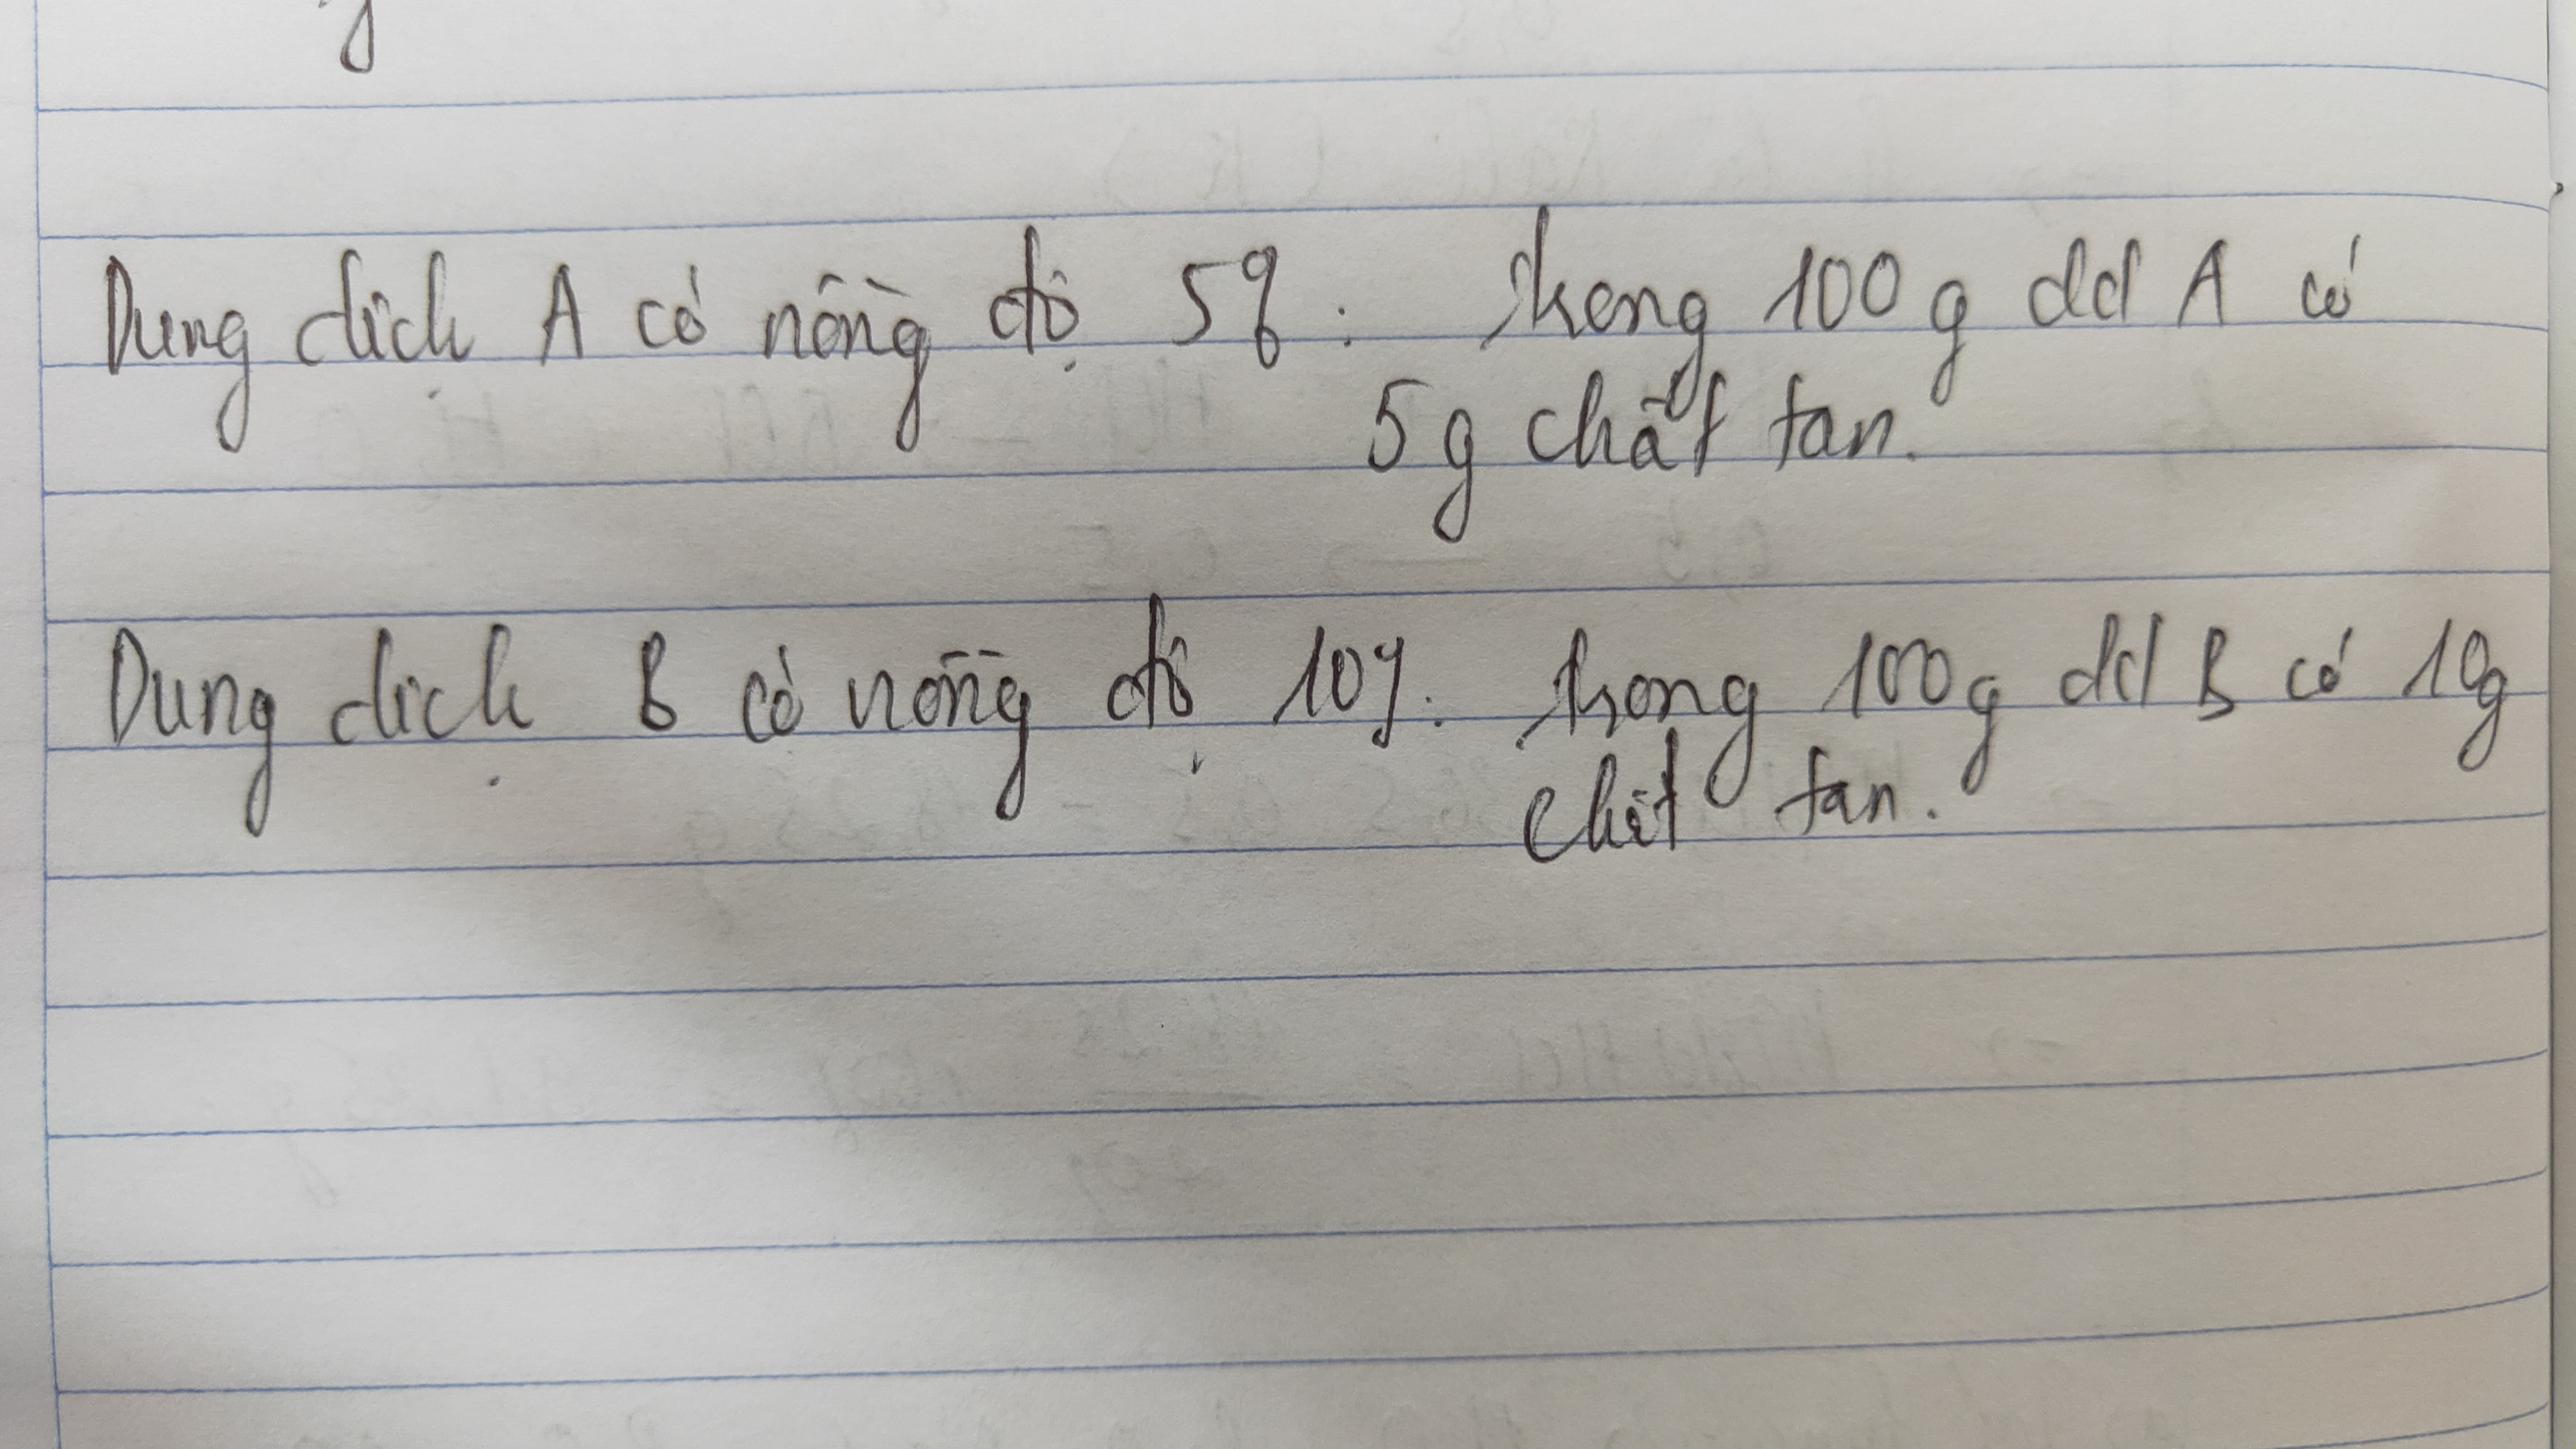 Dung dịch A có nồng độ 5%: trong 100g dd A có
5g chất tan.
Dung dịch B có nồng độ 10%: trong 100g dd B có 10g
chất tan.